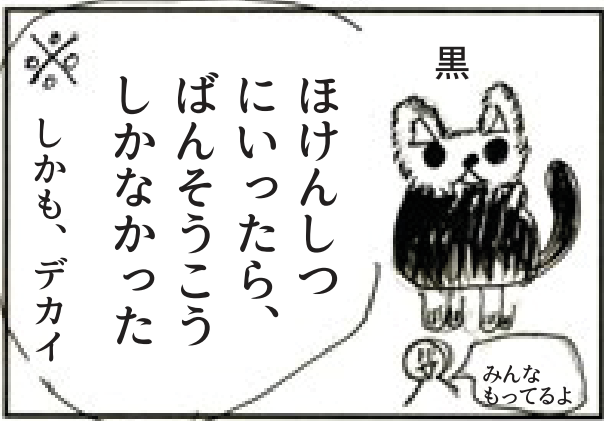 黒
ほけんしつ
にいったら、
ばんそうこう
しかなかった
※
しかも、デカイ
みんな
もってるよ